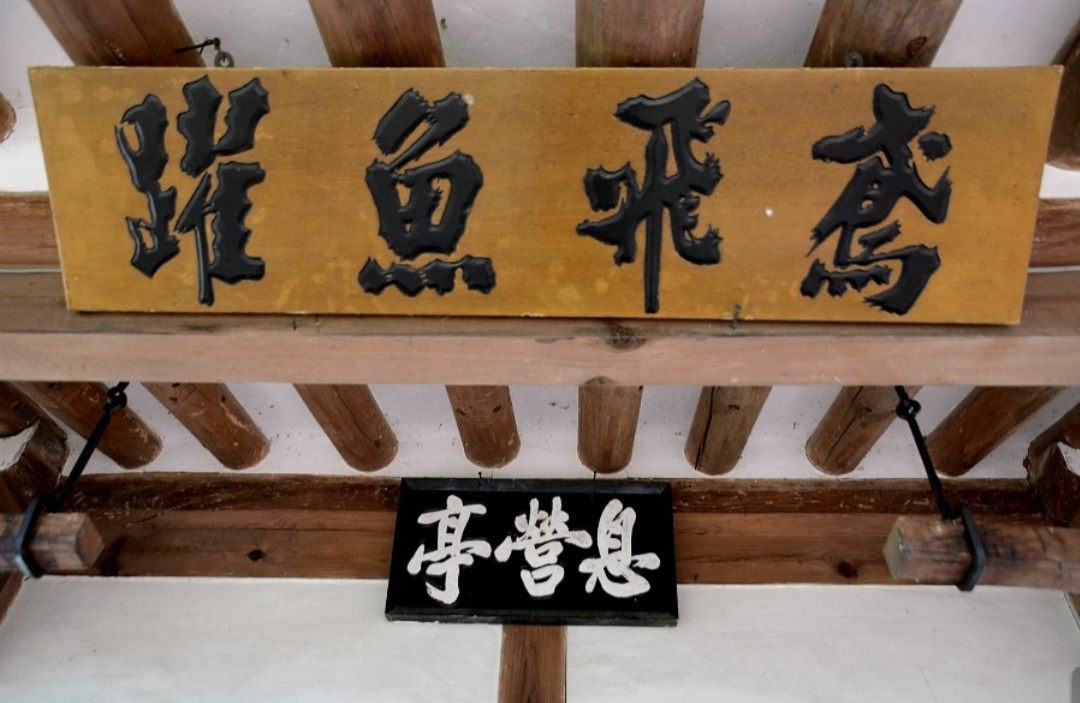 鳶飛魚躍
息營亭